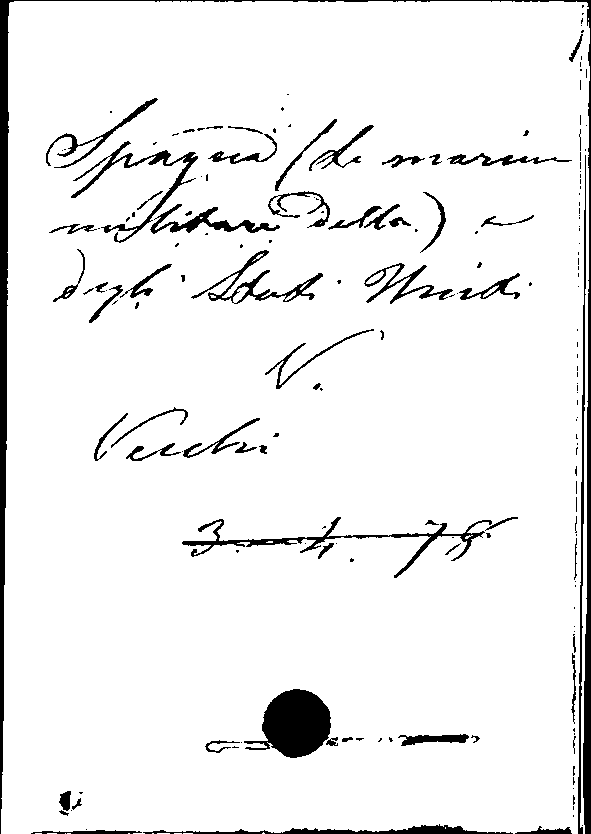 Spagna (la marina
militare della) e
degli Stati Uniti
V.
Vecchi
3. 4. 78